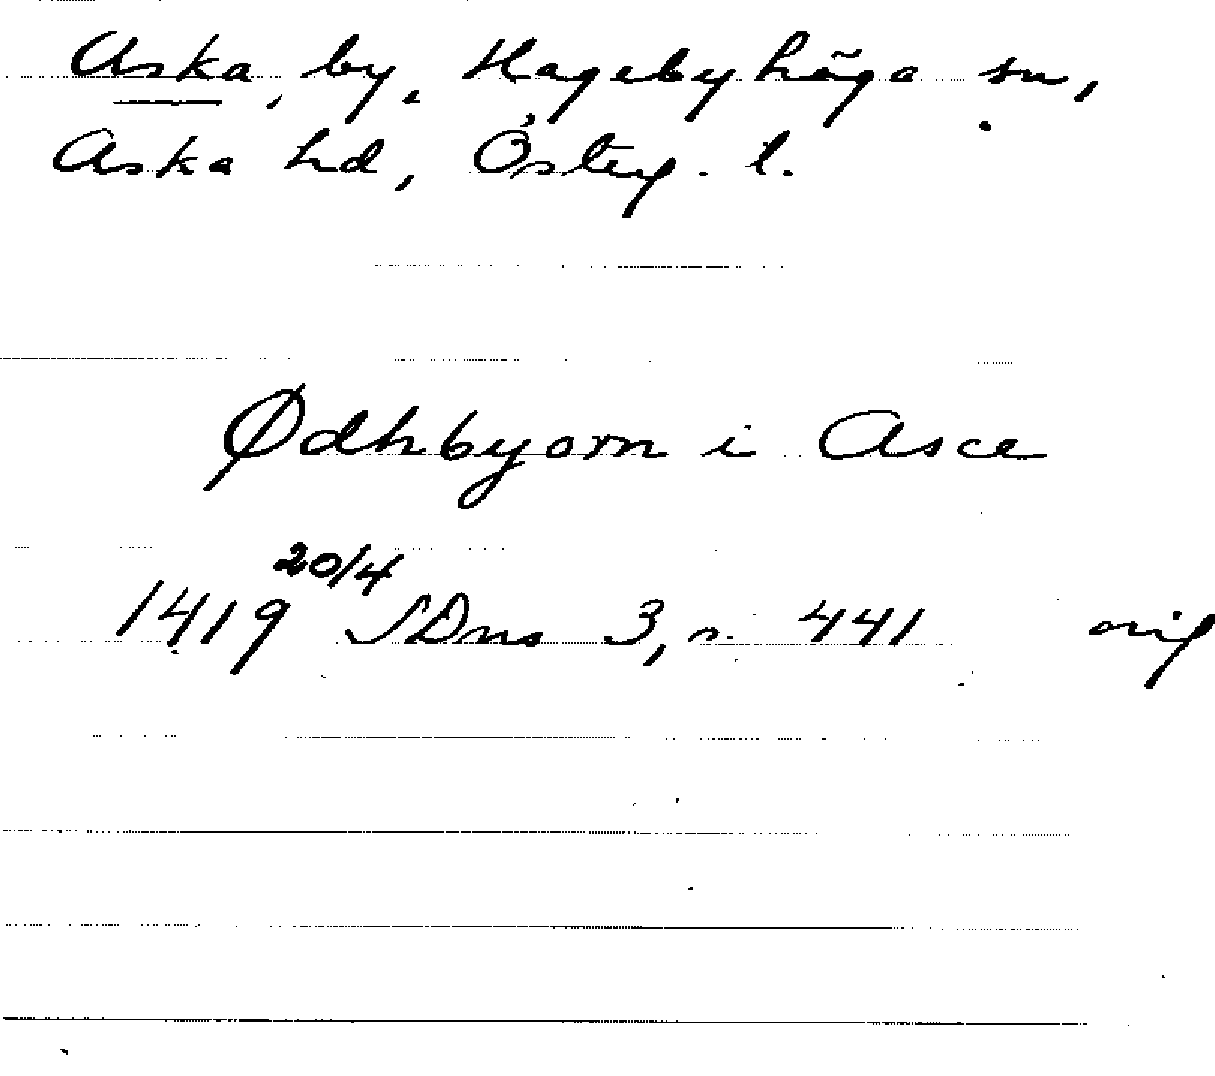 Aska, by, Hagebyhöga sn,
Aska hd, Österg. l.
Ødhbyorn i Asce
1419 20/4 SDns 3, n. 441 orig